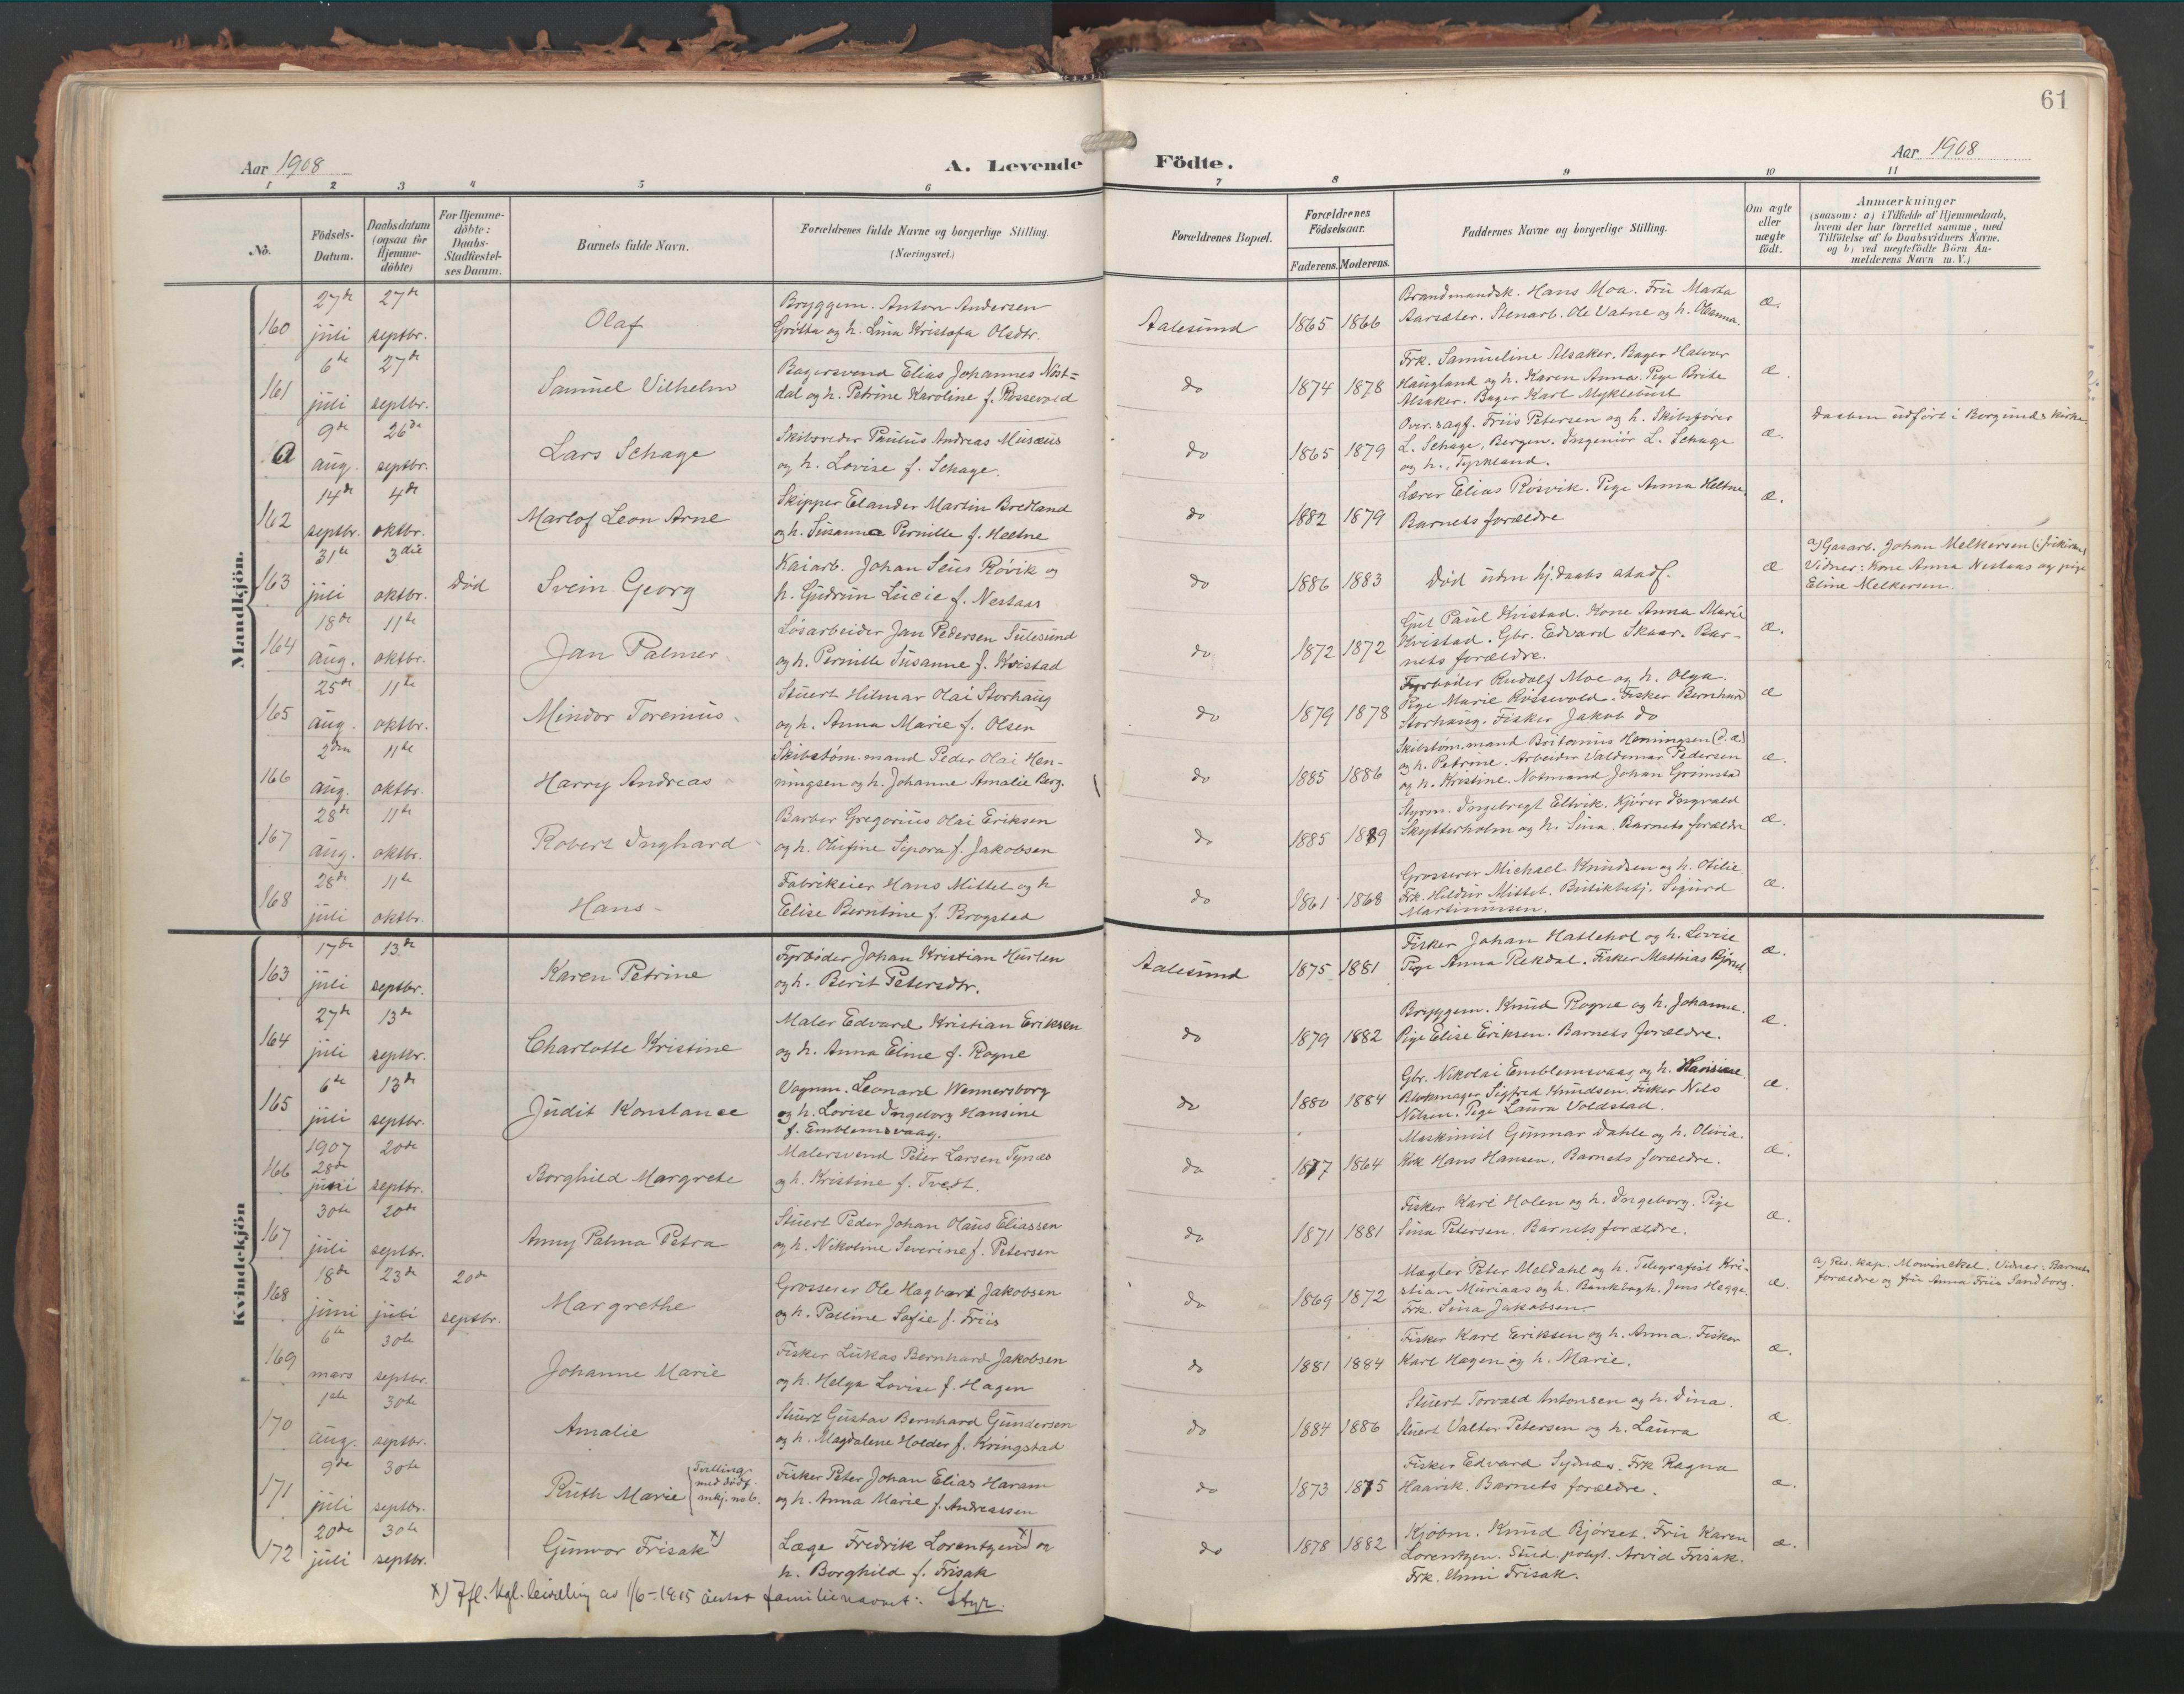 61
Aar 1908
A. Levende Födte.
Aar 1908
1 2 3 4 5 6 7 8 9 10 11
No.
Födsels-Datum.
Daabsdatum (ogsaa for Hjemme-döbte)
For Hjemme-döbte: Daabs-Stadfæstel-ses Datum.
Barnets fulde Navn.
Forældrenes fulde Navne og borgerlige Stilling.
(Næringsvei.)
Forældrenes Bopæl.
Forældrenes Födselsaar.
Faderens. Moderens.
Faddernes Navne og borgerlige Stilling.
Om ægte eller uægte födt.
Anmærkninger
(saasom: a) i Tilfælde af Hjemmedaab,
hvem der har forrettet samme, med
Tilföielse af to Daabsvidners Navne.
og b) ved uægtefödte Börn An-
melderens Navn m. V.)
Mandkjön.
160
27de juli
27de septbr.
Olaf
Bryggem. Anton Andersen
Grötta og h. Lina Kristofa Olsdtr.
Aalesund
1865 1866
Brandmandsk. Hans Moa. Fru Marta
Aarsæter. Stenarb. Ole Vatne og h. Oleanna.
æ.
161
6te juli
27de septbr.
Samuel Vilhelm
Bagersvend Elias Johannes Nöst=
dal og h. Petrine Karoline f. Røssevold
do
1874 1878
Frk. Samueline Alsaker. Bager Halvor
Haugland og h. Karen Anna. Pige Brite
Alsaker. Bager Karl Myklebust
æ.
a
9de aug.
26de septbr.
Lars Schage
Skibsreder Paulus Andreas Musæus
og h. Lovise f. Schage.
do
1865 1879
Over.sagf. Friis Petersen og h. Skibsfører
L. Schage, Bergen. Ingeniör L. Schage
og h., Tyrkland.
æ.
Daaben udført i Borgunds kirke.
162
14de septbr.
4de oktbr.
Marlof Leon Arne
Skipper Elander Martin Bredland
og h. Susanna Pernille f. Heltne
do
1882 1879
Lærer Elias Røsvik. Pige Anna Heltne.
Barnets forældre
æ.
163
31te juli
3die oktbr.
Død
Svein Georg
Kaiarb. Johan Seus Røvik og
h. Gudrun Lucie f. Nestaas
do
1886 1883
Død uden hj.daabs stadf.
æ
a) Gasarb. Johan Melkersen
Vidner: Kone Anna Nestaas og pige
Eline Melkersen.
164
18de aug.
11te oktbr.
Jan Palmer
Løsarbeider Jan Pedersen Sulesund
og h. Pernille Susanne f. Kvistad
do
1872 1872
Gut Paul Kvistad. Kone Anna Marie
Kvistad. Gbr. Edvard Skaar. Bar-
nets forældre.
æ.
165
25de aug.
11te oktbr.
Mindor Torenius
Stuert Hilmar Olai Storhaug
og h. Anna Marie f. Olsen
do
1879 1878
Fyrbøder Rudolf Moe og h. Olga.
Pige Marie Røssevold. Fisker Bernhard
Storhaug. Fisker Jakob do
æ
166
2den aug.
11te oktbr.
Harry Andreas
Skibstøm.mand Peder Olai Hen-
ningsen og h. Johanne Amalie Berg.
do
1885 1886
Skibstøm.mand Henningsen (d.æ.)
og h. Petrine. Arbeider Valdemar Pedersen
og h. Kristine. Notmand Johan Grimstad
æ.
167
28de aug.
11te oktbr.
Robert Inghard
Barber Gregorius Olai Eriksen
og h. Olufine Sipora f. Jakobsen
do
1885 1889
Styrm. Ingebrigt Eltvik. Kjører Ingvald
Skytterholm og h. Sina. Barnets forældre
æ.
168
28de juli
11te oktbr.
Hans
Fabrikeier Hans Mittet og h
Elise Berntine f. Brogsted
do
1861 1868
Grosserer Michael Knudsen og h. Otilie.
Frk. Hildur Mittet. Butikbetj. Sigurd
Martinussen.
æ.
Kvindekjön
163
17de juli
13de septbr.
Karen Petrine
Fyrbøder Johan Kristian Hurlen
og h. Berit Petersdtr.
Aalesund
1875 1881
Fisker Johan Hatlehol og h. Lovise
Pige Anna Rekdal. Fisker Mathias Bjørset.
æ.
164
27de juli
13de septbr.
Charlotte Kristine
Maler Edvard Kristian Eriksen
og h. Anna Eline f. Rogne
do
1879 1882
Bryggem. Knud Rogne og h. Johanne.
Pige Elise Eriksen. Barnets forældre.
æ.
165
6te juli
13de septbr.
Judit Konstanse
Vognm. Leonard Wennersborg
og h. Lovise Ingeborg Hansine
f. Emblemsvaag.
do
1880 1884
Gbr. Nikolai Emblemsvaag og h. Hansine.
Blokmager Sigfred Knudsen. Fisker Nils
Nilsen. Pige Laura Voldstad.
æ.
166
1907
28de juni
20de septbr.
Borghild Margrete
Malersvend Peter Larsen Tynæs
og h. Kristine f. Tvedt.
do
1877 1864
Maskinist Gunnar Dahle og h. Olivia.
Kok Hans Hansen. Barnets forældre.
æ.
167
30te juli
20de septbr.
Anny Palma Petra
Stuert Peder Johan Olaus Eliassen
og h. Nikoline Severine f. Petersen
do
1871 1881
Fisker Karl Holen og h. Ingeborg. Pige
Sina Petersen. Barnets forældre.
æ.
168
18de juni
23de juli
20de septbr.
Margrethe
Grosserer Ole Hagbart Jakobsen
og h. Palline Sofie f. Friis
do
1869 1872
Mægler Peter Meldahl og h. Telegrafist Kri-
stian Muriaas og h. Bankbogh. Jens Hegge.
Frk. Sina Jakobsen.
æ.
a) Res. kap. Mowinckel. Vidner: Barnets
forældre og fru Anna Friis Sandborg.
169
6te mars
30te septbr.
Johanne Marie
Fisker Lukas Bernhard Jakobsen
og h. Helga Lovise f. Hagen
do
1881 1884
Fisker Karl Eriksen og h. Anna. Fisker
Karl Hagen og h. Marie.
æ.
170
1ste aug.
30te septbr.
Amalie
Stuert Gustav Bernhard Gundersen
og h. Magdalene Holder f. Kringstad
do
1884 1886
Stuert Torvald Antonsen og h. Dina.
Stuert Valter Petersen og h. Laura
æ.
171
9de juli
30te septbr.
Ruth Marie
Tvilling med dødf. mkj. no 6.
Fisker Peter Johan Elias Haram
og h. Anna Marie f. Andreassen
do
1873 1875
Fisker Edvard Sydnæs. Frk Ragna
Haavik. Barnets forældre.
æ.
172
20de juli
30te septbr.
Gunvor Frisak x)
Læge Fredrik Lorentzen x) og
h. Borghild f. Frisak
do
1878 1882
Kjøbm. Knud Bjørset. Fru Karen
Lorentzen. Stud. polyt. Arvid Frisak.
Frk. Unni Frisak.
æ.
x) Ifl. kgl. bevilling av 1/6-1915 antat familienavnet: Styr.